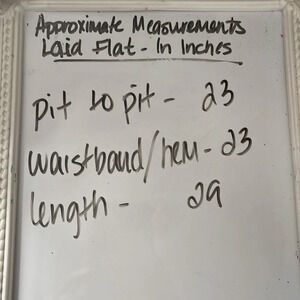 Approximate Measurements
Laid Flat - In Inches
pit to pit - 23
waistband/hem - 23
length - 29